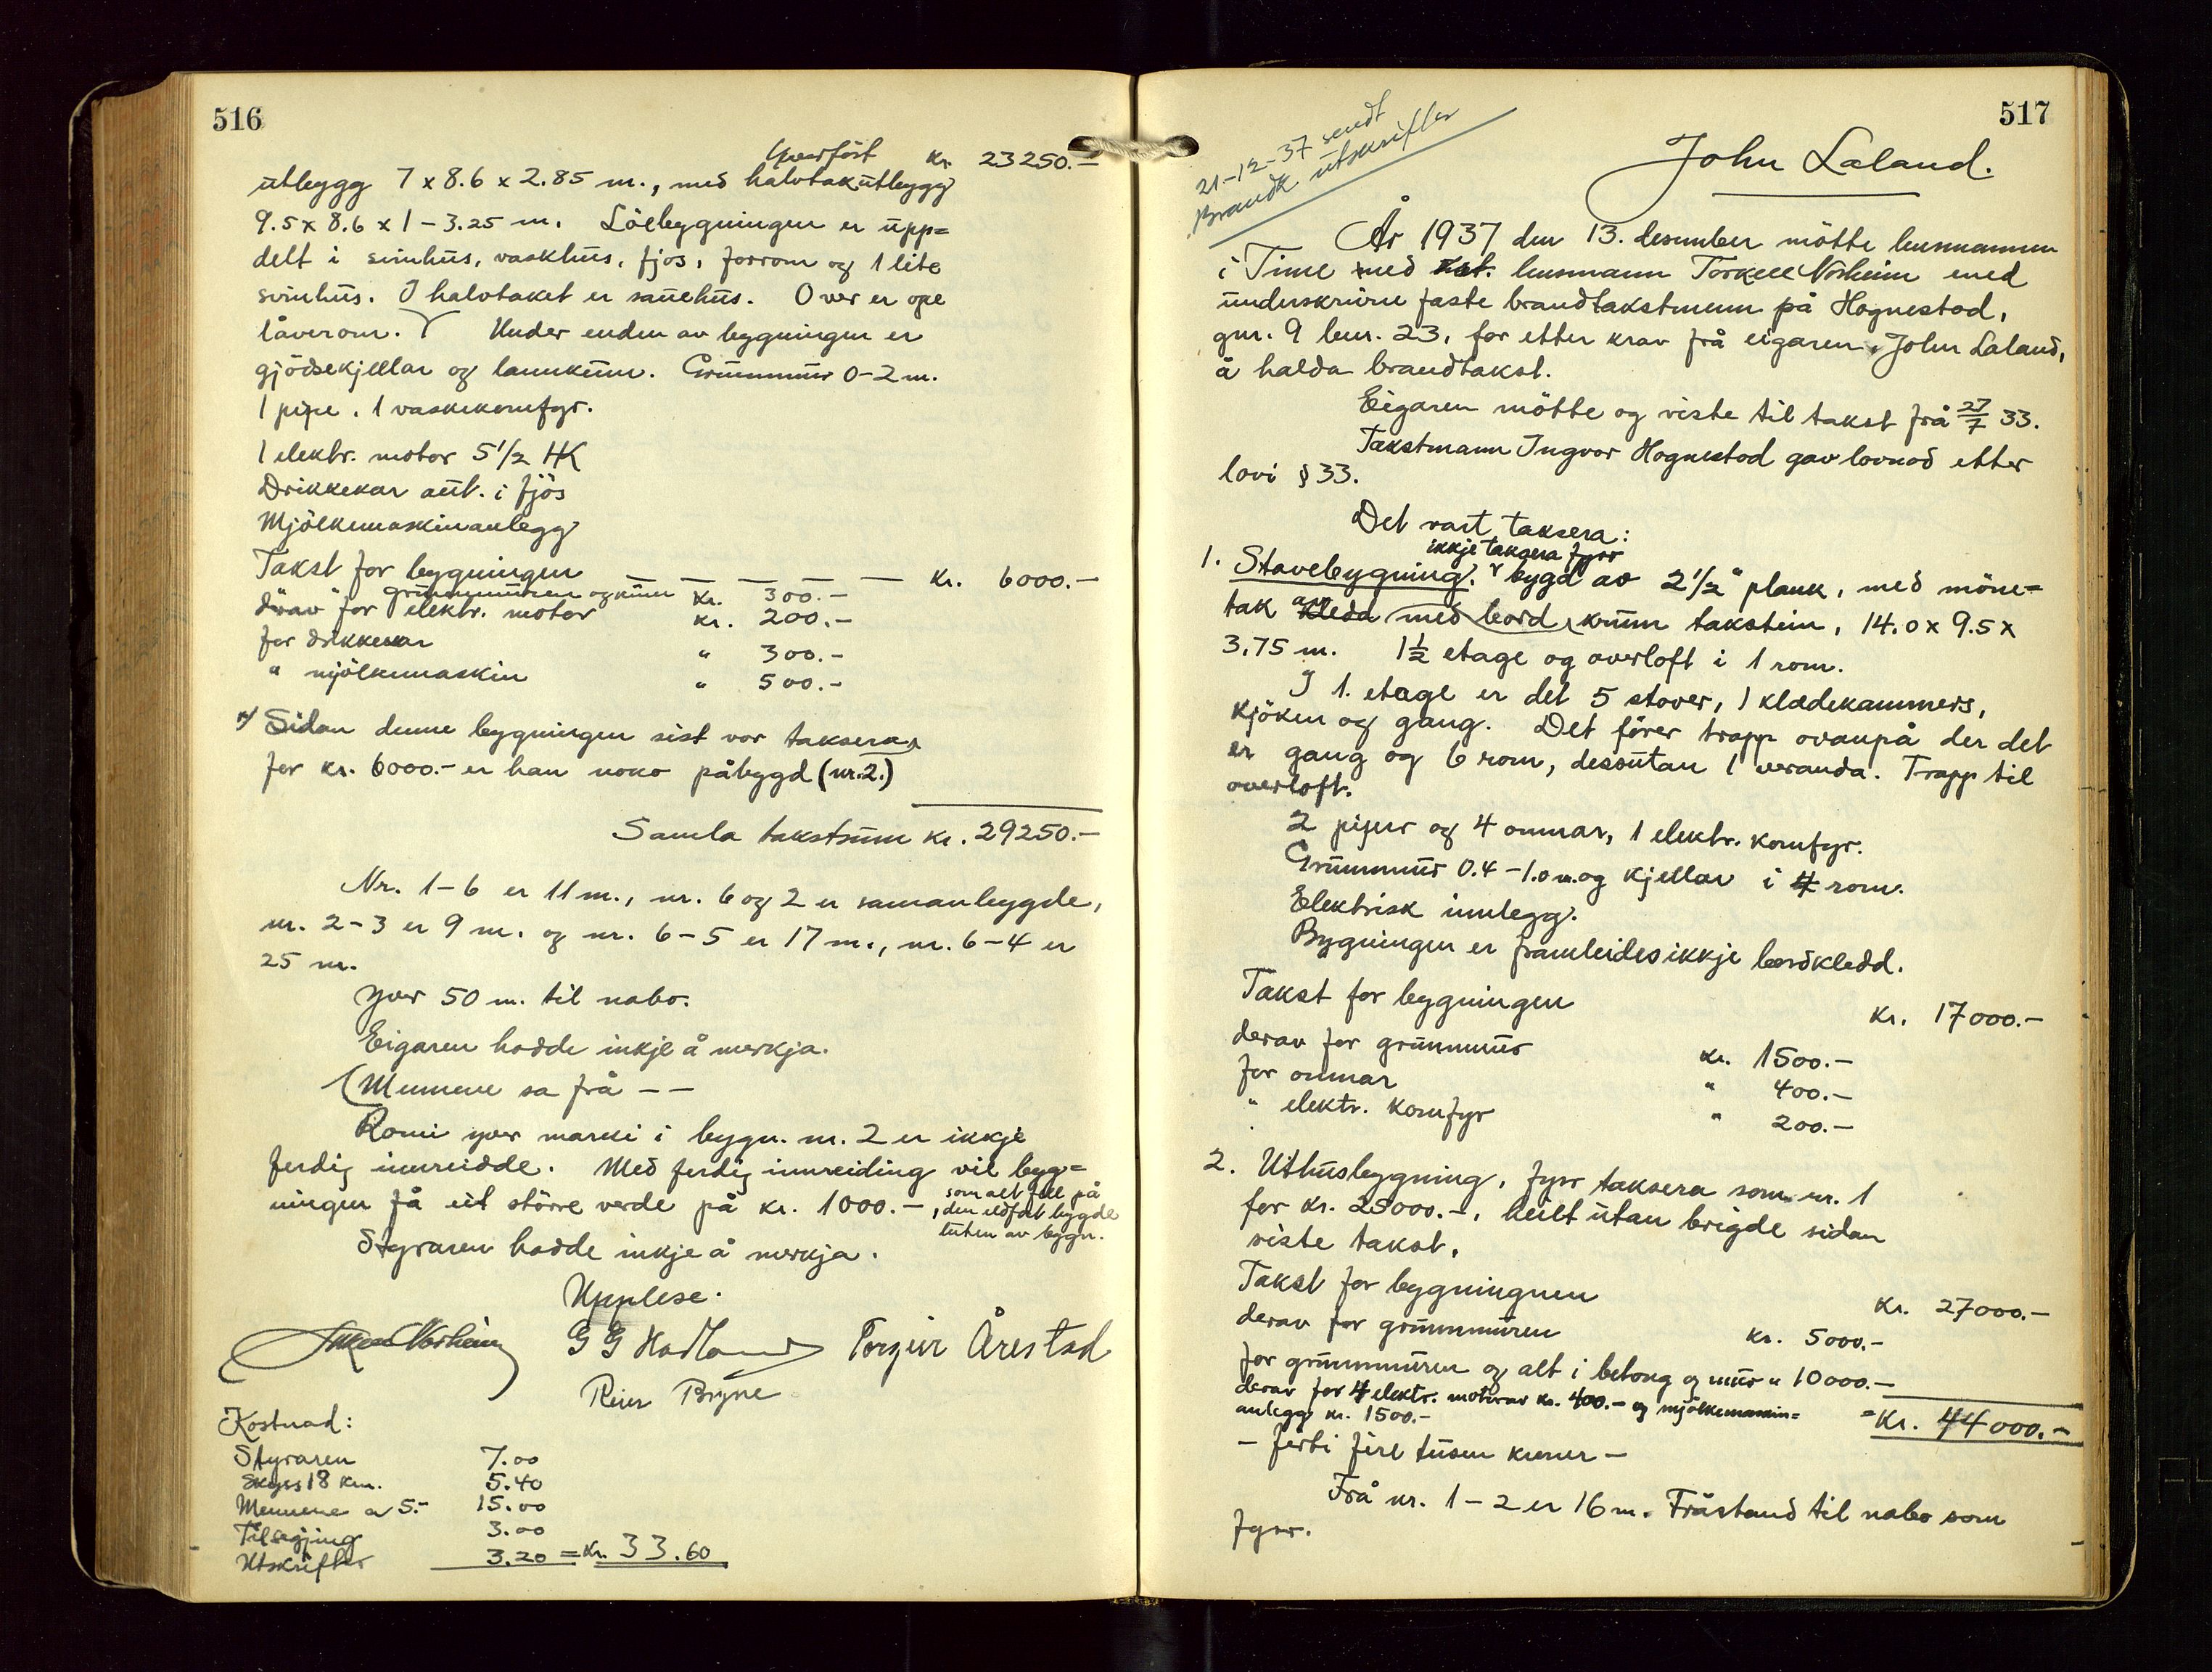 516
Yverført kr. 23250.-
utbygg 7 x 8.6 x 2.85 m., med halvtakutbygg
9.5 x 8.6 x 1 - 3.25 m. Löebygningen er upp=
delt i svinhus, vaskhus, fjos, forrom og 1 lite
svinhus. I halvtaket er sauehus. Over er ope
låverom. Under enden av bygningen er
gjödsekjellar og lannkum. Grunnmur 0-2 m.
1 pipe. 1 vaskekomfyr.
1 elektr. motor 5 1/2 HK
Drikkekar aut. i fjös
Mjölkemaskinanlegg
Takst for bygningen — — — — — kr. 6000.-
derav for grunnmuren og kum kr. 300.-
" for elektr. motor kr. 200.-
for drikkekar " 300.-
" mjölkemaskin " 500.-
Sidan denne bygningen sist var taksera
for kr. 6000.- er han noko påbygd (nr. 2.)
Samla takstsum kr. 29250.-
Nr. 1-6 er 11 m., nr. 6 og 2 er samanbygde,
nr. 2-3 er 9 m. og nr. 6-5 er 17 m., nr. 6-4 er
25 m.
Yver 50 m. til nabo.
Eigaren hadde inkje å merkja.
Mennene sa frå — —
Romi yver marki i bygn. nr. 2 er ikkje
ferdig innreidde. Med ferdig innreiding vil byg=
ningen få eit större verde på kr. 1000.-, som alt fell på
den eldfast bygde
luten av bygn.
Styraren hadde inkje å merkja.
Upplese.
Torkell Norheim G G Hadland Torgeir Årestad
Reier Bryne
Kostnad:
Styraren 7.00
Skyss 18 km. 5.40
Mennene a 5.- 15.00
Tilsegjing 3.00
Utskrifter 3.20 = Kr. 33.60
517
21-12-37 sendt
Brandk utskrifter
John Laland.
År 1937 den 13. desember mötte lensmannen
i Time med lensmann Torkell Norheim med
underskrivne faste brandtakstmenn på Hognestad,
gnr. 9 bnr. 23, for etter krav frå eigaren, John Laland,
å halda brandtakst.
Eigaren mötte og viste til takst frå 27/7 33.
Takstmann Ingvar Hognestad gav lovnad etter
lovi § 33.
Det vart taksera:
ikkje taksera fyrr
1. Stovebygning. bygd av 2 1/2" plank, med möne=
tak av kledd med bord, krum takstein, 14.0 x 9.5 x
3.75 m. 1 1/2 etage og overloft i 1 rom.
I 1. etage er det 5 stover, 1 klædekammers,
kjöken og gang. Det förer trapp ovanpå der det
er gang og 6 rom, dessutan 1 veranda. Trapp til
overloft.
2 pipur og 4 omnar, 1 elektr. komfyr.
Grunnmur 0.4 - 1.0 m. og kjellar i 4 rom.
Elektrisk innlegg.
Bygningen er framleides ikkje bordkledd.
Takst for bygningen kr. 17000.-
derav for grunnmur kr. 1500.-
for omnar " 400.-
" elektr. komfyr " 200.-
2. Uthusbygning, fyrr taksera som nr. 1
for kr. 25000.-, heilt utan brigde sidan
siste takst.
Takst for bygningnen kr. 27000.-
derav for grunnmuren kr. 5000.-
for grunnmuren og alt i betong og mur " 10000.-
derav for 4 elektr. motorar kr. 400.- og mjölkemaskin=
anlegg kr. 1500.- = Kr. 44000.-
- førti fire tusen kroner -
Frå nr. 1-2 er 16 m. Fråstand til nabo som
fyrr.